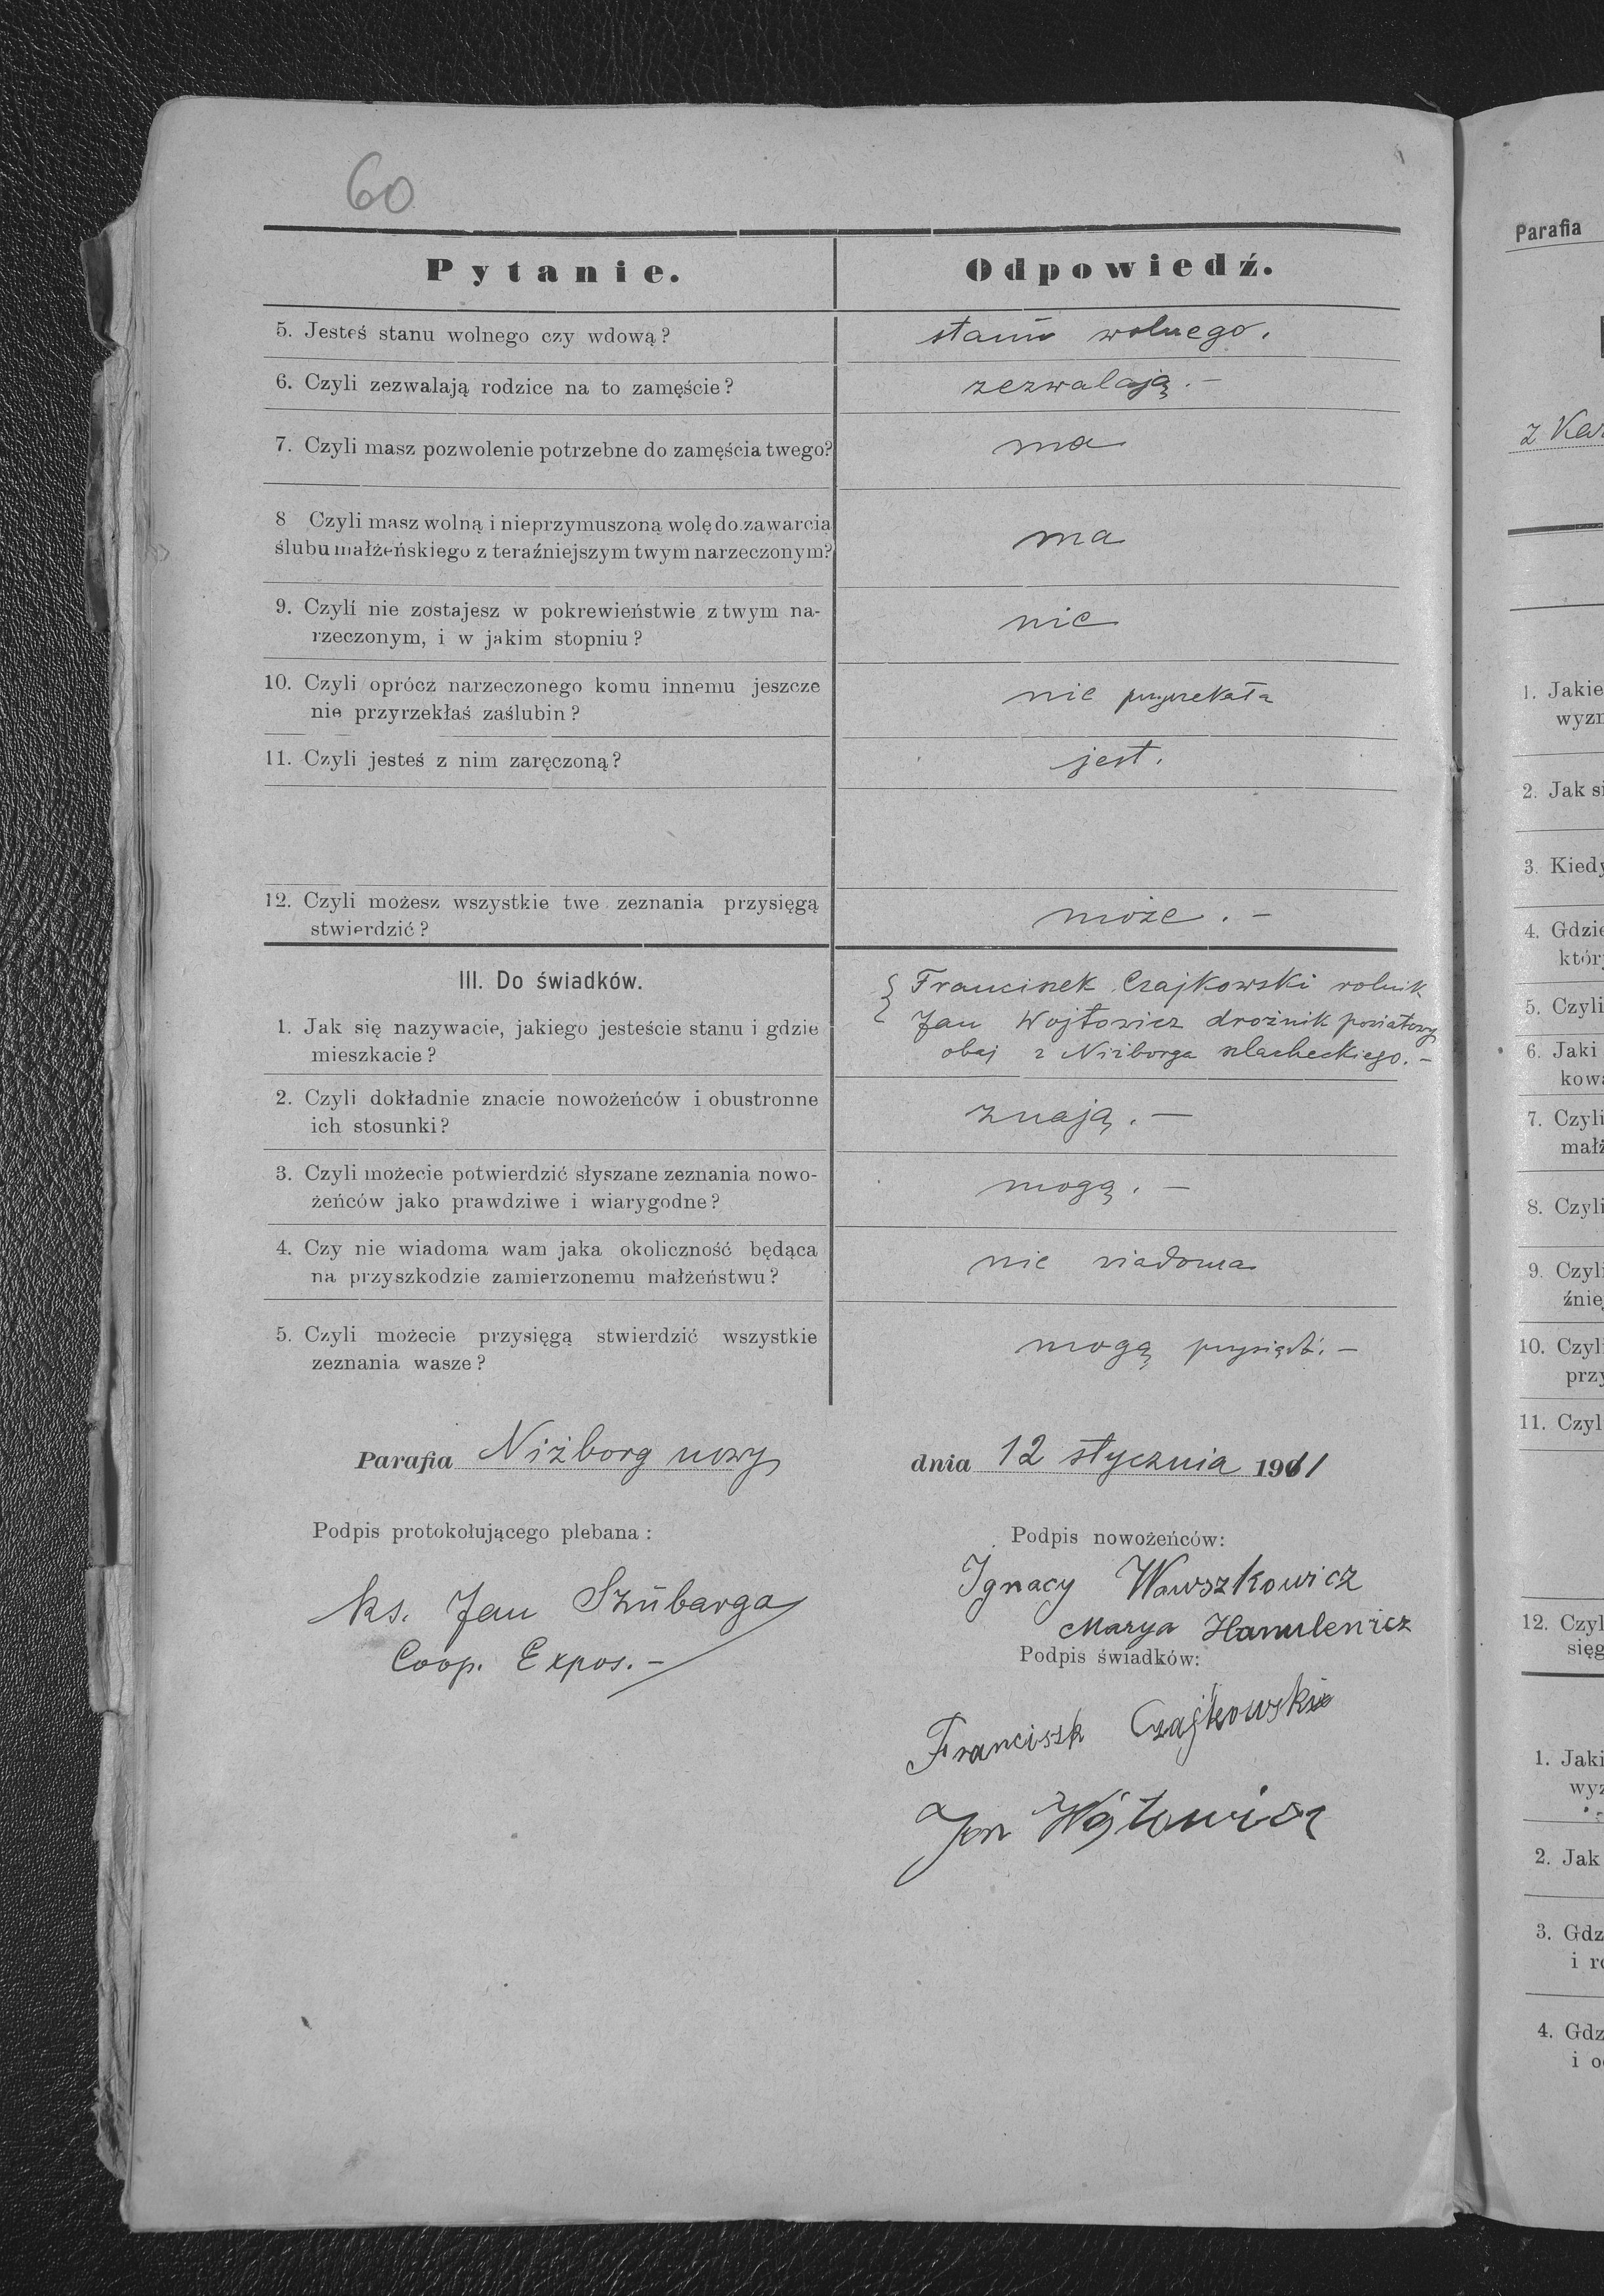 60
Pytanie.
Odpowiedź.
5. Jesteś stanu wolnego czy wdową?
stanu wolnego.
6. Czyli zezwalają rodzice na to zamęście?
zezwalają. —
7. Czyli masz pozwolenie potrzebne do zamęścia twego?
ma
8 Czyli masz wolną i nieprzymuszoną wolę do zawarcia
ślubu małżeńskiego z teraźniejszym twym narzeczonym?
ma
9. Czyli nie zostajesz w pokrewieństwie z twym na-
rzeczonym, i w jakim stopniu?
nie
10. Czyli oprócz narzeczonego komu innemu jeszcze
nie przyrzekłaś zaślubin?
nie przyrzekała
11. Czyli jesteś z nim zaręczoną?
jest.
12. Czyli możesz wszystkie twe zeznania przysięgą
stwierdzić?
może. —
III. Do świadków.
1. Jak się nazywacie, jakiego jesteście stanu i gdzie
mieszkacie?
Franciszek Czajkowski rolnik
Jan Wojtowicz drożnik powiatowy
obaj z Niżborga szlacheckiego. —
2. Czyli dokładnie znacie nowożeńców i obustronne
ich stosunki?
znają. —
3. Czyli możecie potwierdzić słyszane zeznania nowo-
żeńców jako prawdziwe i wiarygodne?
mogą. —
4. Czy nie wiadoma wam jaka okoliczność będąca
na przyszkodzie zamierzonemu małżeństwu?
nie wiadoma
5. Czyli możecie przysięgą stwierdzić wszystkie
zeznania wasze?
mogą przysiądz. —
Parafia Niżborg nowy
dnia 12 stycznia 1911
Podpis protokołującego plebana:
ks. Jan Szubarga
Coop. Expos. —
Podpis nowożeńców:
Ignacy Wawszkowicz
Marya Hanulewicz
Podpis świadków:
Franciszk Czajkowski
Jan Wójtowicz
Parafia
z Kar
1. Jakie
wyzn
2. Jak si
3. Kiedy
4. Gdzie
któr
5. Czyli
6. Jaki
kowa
7. Czyli
małż
8. Czyli
9. Czyli
źniej
10. Czyli
przy
11. Czyl
12. Czyl
sięg
1. Jaki
wyz
2. Jak
3. Gdz
i ro
4. Gdz
i o